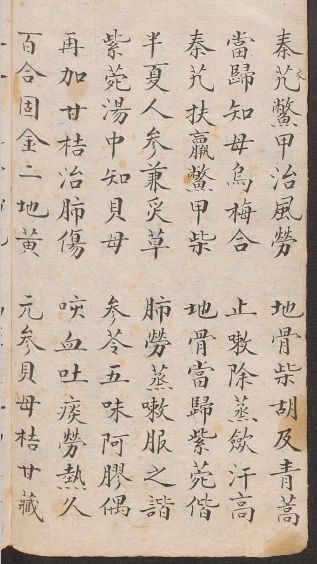 秦艽鱉甲治風勞　地骨柴胡及青蒿
當歸知母烏梅合　止嗽除蒸斂汗高
秦艽扶羸鱉甲柴　地骨當歸紫菀偕
半夏人參兼炙草　肺勞蒸嗽服之諧
紫菀湯中知貝母　參苓五味阿膠偶
再加甘桔治肺傷　咳血吐痰勞熱久
百合固金二地黃　元參貝母桔甘藏